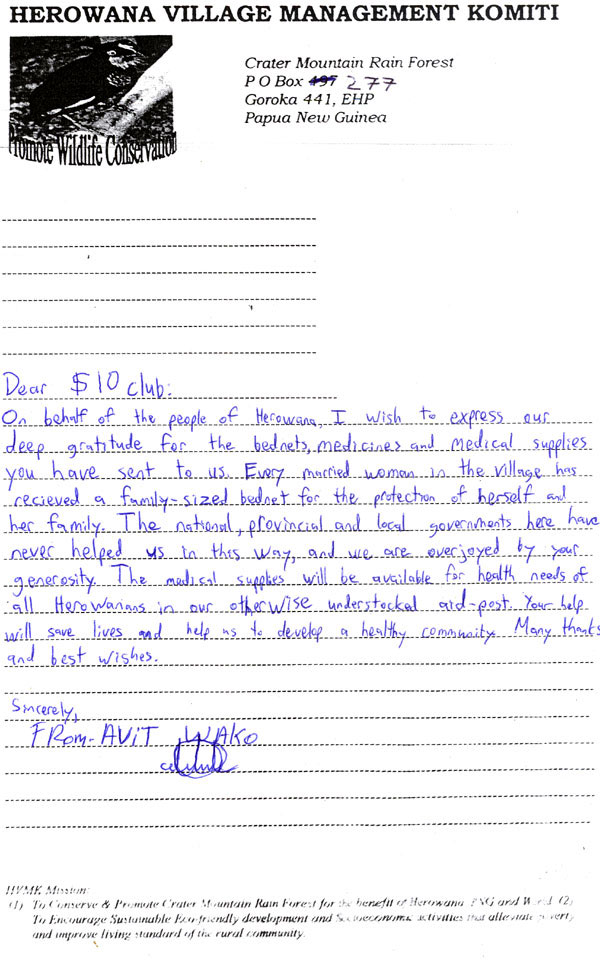 HEROWANA VILLAGE MANAGEMENT KOMITI
Crater Mountain Rain Forest
P O Box 497 277
Goroka 441, EHP
Papua New Guinea
Promote Wildlife Conservation
Dear $10 club:
On behalf of the people of Herowana, I wish to express our
deep gratitude for the bednets, medicines and medical supplies
you have sent to us. Every married woman in the village has
recieved a family-sized bednet for the protection of herself and
her family. The national, provincial and local governments here have
never helped us in this way, and we are overjoyed by your
generosity. The medical supplies will be available for health needs of
all Herowanans in our otherwise understocked aid-post. Your help
will save lives and help us to develop a healthy community. Many thanks
and best wishes.
Sincerely,
FRom-AViT WAKO
HVMK Mission:
(1) To Conserve & Promote Crater Mountain Rain Forest for the benefit of Herowana, PNG and World. (2)
To Encourage Sustainable Eco-friendly development and Socioeconomic activities that alleviate poverty
and improve living standard of the rural community.